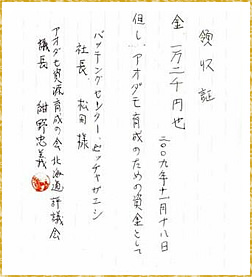 領収証
金 一万二千円也
二〇〇九年十一月十八日
但し、アオダモ育成のための資金として
バッティングセンター・ピッチャガエシ
社長 松同様
アオダモ資源育成の会北海道評議会
議長 紺野忠義